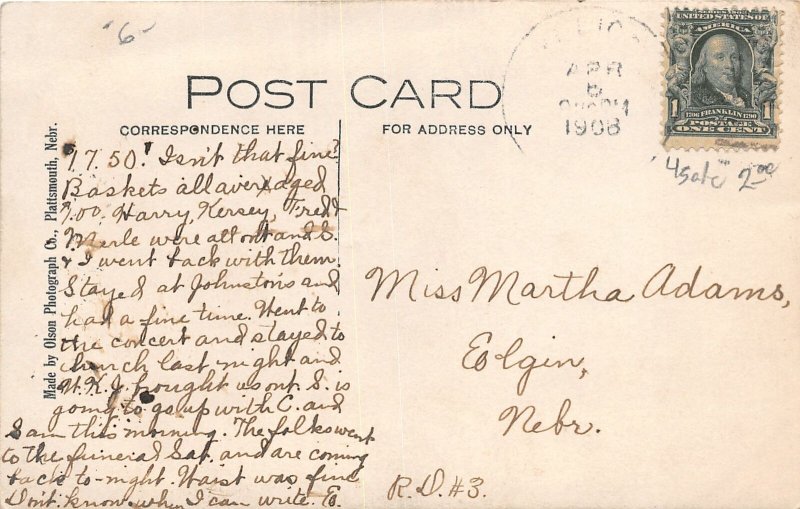 6
POST CARD
CORRESPONDENCE HERE
FOR ADDRESS ONLY
Made by Olson Photograph Co., Plattsmouth, Nebr.
APR
6
1908
UNITED STATES OF
AMERICA
1
1
1706 FRANKLIN 1790
POSTAGE
ONE CENT
2.00
17.50! Isn't that fine?
Baskets all averaged
1.00. Harry, Kersey, Fred &
Merle were all out and S.
& I went back with them.
Stayed at Johnston's and
had a fine time. Went to
the concert and stayed to
church last night and
W.K.J. brought us out. S. is
going to go up with C. and
S am this morning. The folks went
to the funeral Sat. and are coming
back to-night. Waist was fine
Don't know when I can write. E.
Miss Martha Adams,
Elgin,
Nebr.
R.D. #3.